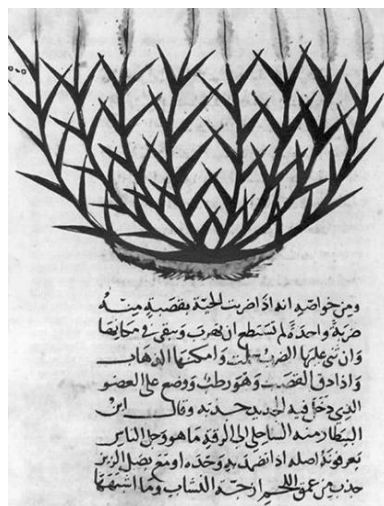 ومن خواصه انه اذا ضربت الحية بقصبة منه
ضربة واحدة لم تستطع ان تهرب وتبقى في مكانها
وان ثني عليها الضرب سلت وامكنها الذهاب
واذا دق القصب وهو رطب ووضع على العضو
الذي دخل فيه الحديد جذبه وقال ابن
البيطار منه الساحلي الى الرقة ما هو وجل الناس
يعرفونه اصله اذا تضمد به وحده او مع بصل الزيز
جذب من عمق اللحم ازجة النشاب وما اشبهها